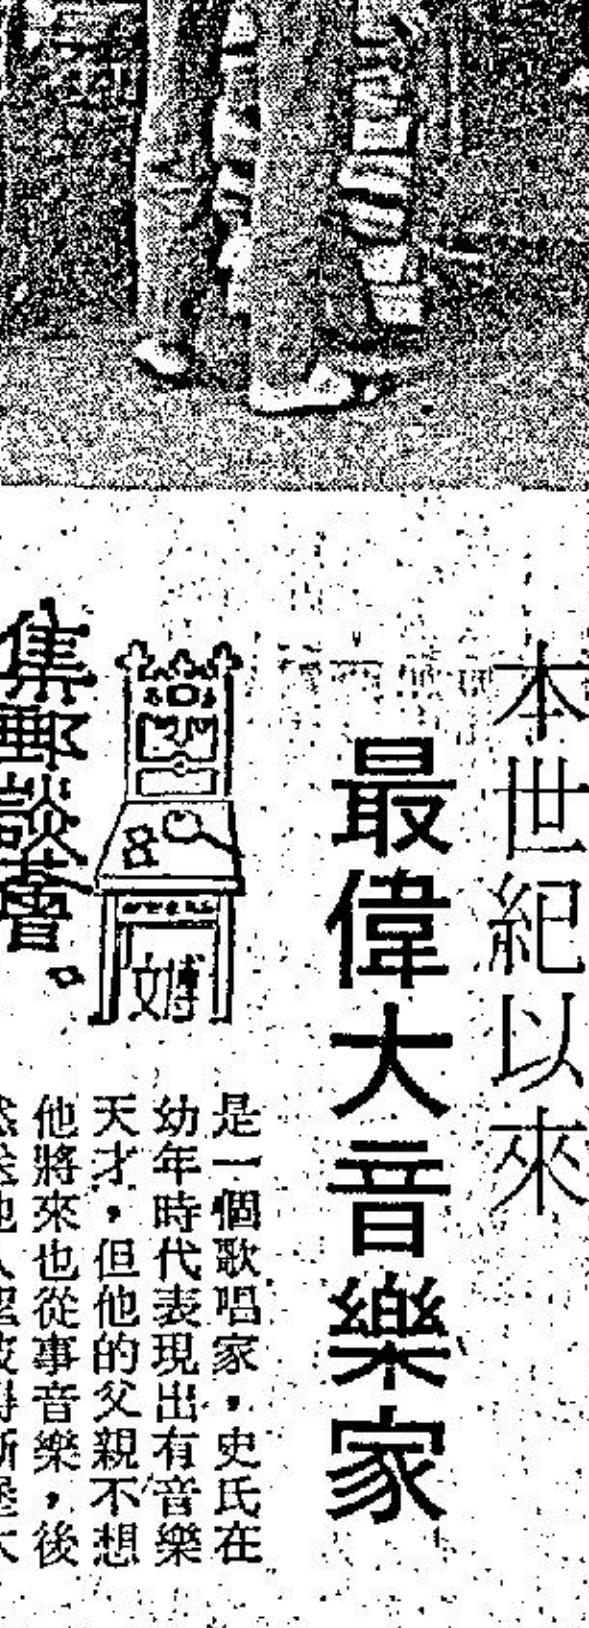 本世紀以來
最偉大音樂家
集郵談薈
文博
是一個歌唱家，史氏在
幼年時代表現出有音樂
天才，但他的父親不想
他將來也從事音樂，後